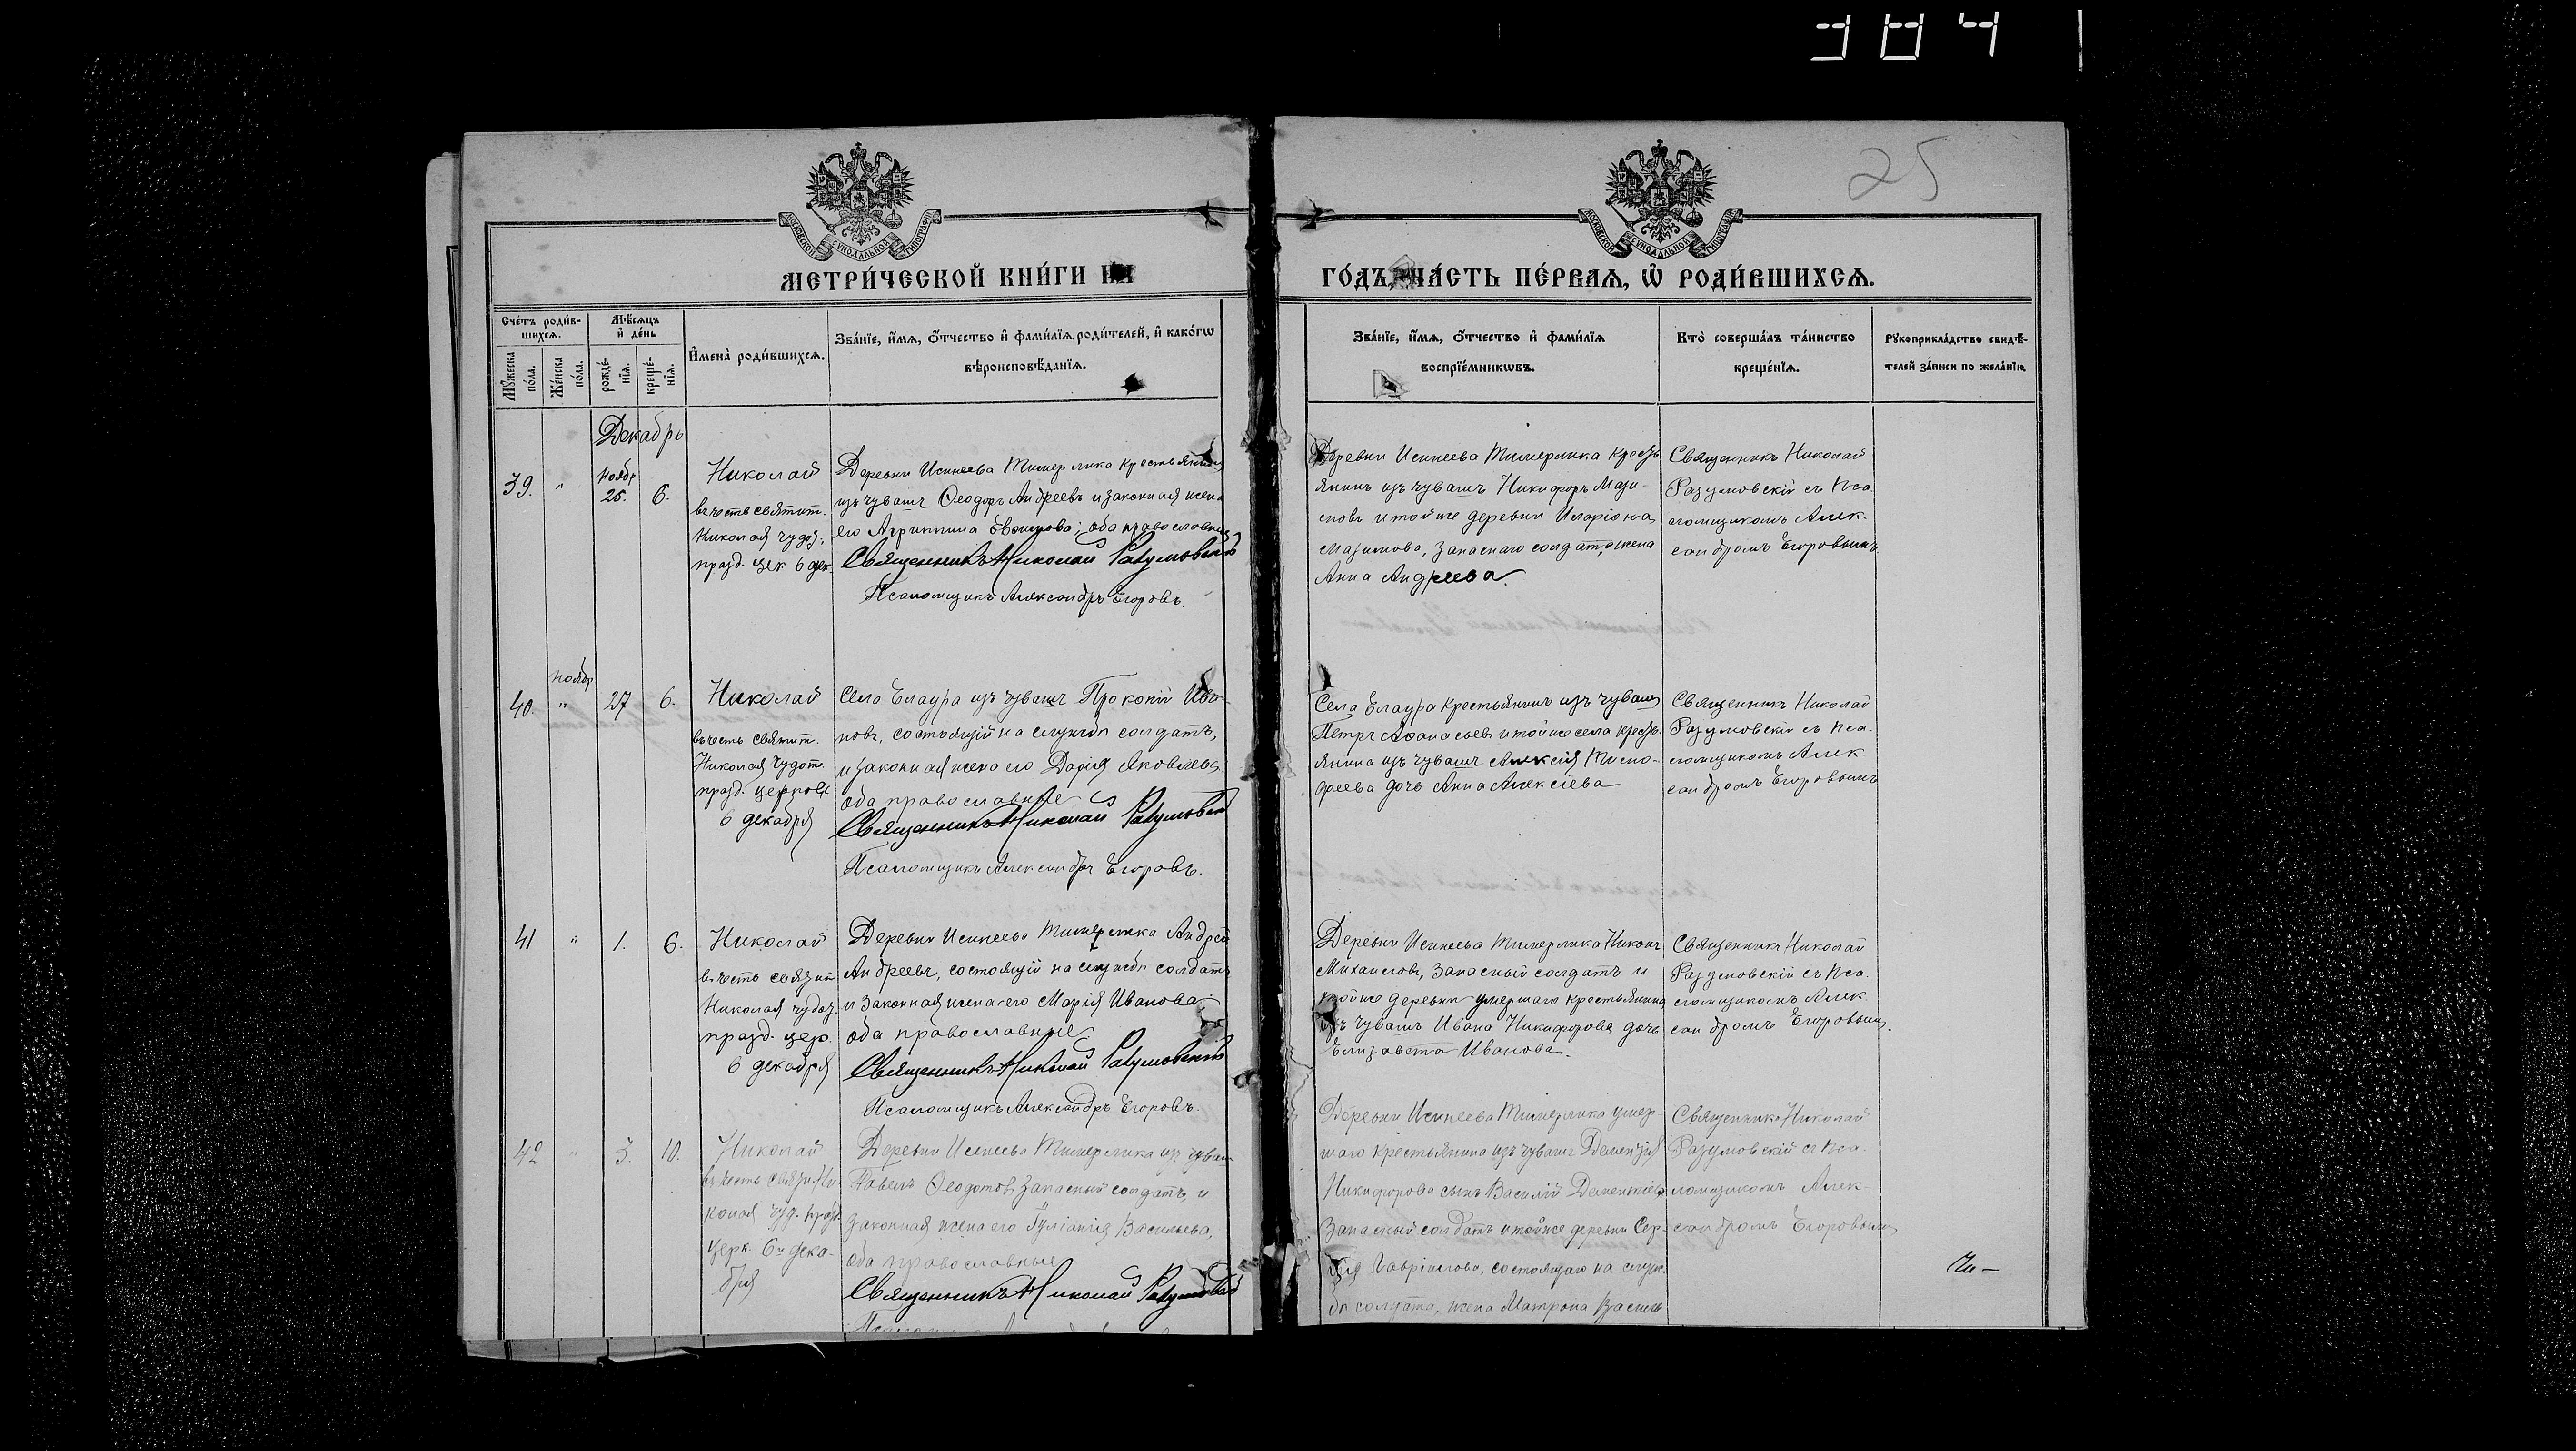 384
25
МЕТРИ́ЧЕСКОЙ КНИ́ГИ НА
ГО́ДЪ, ЧА́СТЬ ПЕ́РВАЯ, Ѡ҆ РОДИ́ВШИХСЯ.
Сче́тъ роди́в-
шихся.
Мѣ́сяцъ
и҆ де́нь
Мꙋ́жеска
по́ла.
Же́нска
по́ла.
рожде́-
нїя.
креще́-
нїя.
И҆мена̀ роди́вшихся.
Зва́нїе, и҆́мя, ѻ҆́тчество и҆ фами́лїя роди́телей, и҆ како́гѡ
вѣроисповѣ́данїя.
Зва́нїе, и҆́мя, ѻ҆́тчество и҆ фами́лїя
воспрїе́мникѡвъ.
Кто̀ соверша́лъ та́инство
креще́нїя.
Рꙋкоприкла́дство свидѣ́-
телей за́писи по жела́нїю.
Декабрь
39.
"
Ноябр
25.
6.
Николай
въ честь святит.
Николая чудот.
празд. цер 6 дек.
Деревни Исинеева Тимерлика крестьянинъ
изъ чувашъ Ѳеодоръ Андреевъ и законная жена
его Агриппина; оба православные
Священникъ Николай Разумовскій
Псаломщикъ Александръ Егоровъ.
Деревни Исинеева Тимерлика кресть-
янинъ изъ чувашъ Никифоръ Мази-
повъ и той же деревни Илларіона
Мазипова, запаснаго солдата, жена
Анна Андреева.
Священникъ Николай
Разумовскій съ пса-
ломщикомъ Алек-
сандромъ Егоровымъ
40.
Ноябр
"
27
6.
Николай
въ честь святит.
Николая Чудот.
празд. церковію
6 декабря
Села Елаура изъ чувашъ Прокопій Ива-
новъ, состоящій на службѣ солдатъ,
и законная жена его Дарія Яковлева
оба православные
Священникъ Николай Разумовскій
Псаломщикъ Александръ Егоровъ.
Села Елаура крестьянинъ изъ чувашъ
Петръ Аѳанасьевъ и той же села кресть-
янина изъ чувашъ Алексія Тимо-
феева дочь Анна Алексіева
Священникъ Николай
Разумовскій съ пса-
ломщикомъ Алек-
сандромъ Егоровымъ
41
"
1.
6.
Николай
въ честь святит
Николая чудот.
празд. цер.
6 декабря
Деревни Исинеева Тимерлика Андрей
Андреевъ, состоящій на службѣ солдатъ
и законная жена его Марія Иванова
оба православные
Священникъ Николай Разумовскій
Псаломщикъ Александръ Егоровъ.
Деревни Исинеева Тимерлика Никонъ
Михаиловъ, запасный солдатъ и
той же деревни умершаго крестьянина
изъ чувашъ Ивана Никифорова дочь
Елизавета Иванова.
Священникъ Николай
Разумовскій съ пса-
ломщикомъ Алек-
сандромъ Егоровымъ.
42
"
3.
10.
Николай
въ честь святи. Ни-
колая чуд. празд
церк. 6го дека-
бря
Деревни Исинеева Тимерлика изъ чуваш
Павелъ Ѳедотовъ запасный солдатъ, и
законная жена его Іуліанія Васильева,
оба православные
Священникъ Николай Разумовскій
Деревни Исинеева Тимерлика умер-
шаго крестьянина изъ чувашъ Дементія
Никифорова сынъ Василій Дементіевъ
запасный солдатъ и той же деревни Сер-
гія Гавріилова, состоящаго на служ-
бѣ солдата, жена Матрона Василь
Священникъ Николай
Разумовскій съ пса-
ломщикомъ Алек-
сандромъ Егоровымъ